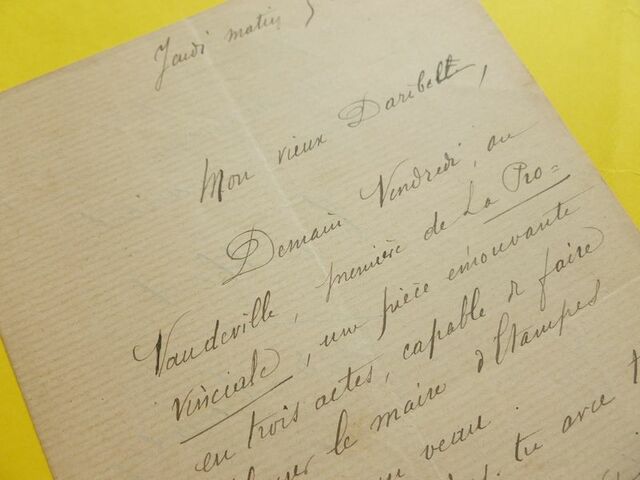 Jeudi matin
Mon vieux Daribelt,
Demain Vendredi, au
Vaudeville, première de La Pro=
vinciale, une pièce émouvante
en trois actes, capable de faire
le maire d'Etampes
un veau.
tu avec